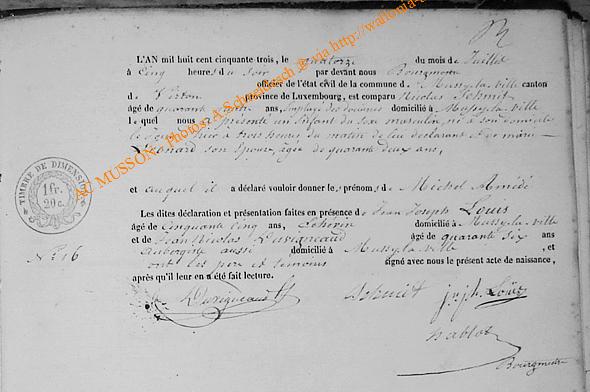 L'AN mil huit cent cinquante-trois, le quatorze du mois de Juillet
à Cinq heures du soir par devant nous Bourgmestre
officier de l'état civil de la commune de Mussy-la-ville canton
de Virton province de Luxembourg, est comparu Nicolas Schmit
âgé de quarante ans, employé des douanes domicilié à Mussy-la-ville
lequel nous a présenté un enfant du sexe masculin, né à son domicile
le jour d'hier à trois heures du matin de lui déclarant et de marie
Léonard son épouse, âgée de quarante deux ans,
et auquel il a déclaré vouloir donner les prénoms de Michel Amédé
Les dites déclaration et présentation faites en présence de Jean Joseph Louis
âgé de Cinquante Cinq ans, Echevin domicilié à Mussy-la-ville
et de Jean Nicolas Duvigneaud âgé de quarante six ans
Aubergiste aussi domicilié à Mussy-la-ville, et
ont les père et témoins signé avec nous le présent acte de naissance,
après qu'il leur en a été fait lecture.
TIMBRE DE DIMENSION
1 fr.
20 c.
N° 16
Duvigneaud Schmit j. j. h. Louis
hablot
Bourgmestre
AU MUSSON Photos: A Schmalbach via http://wallonia-